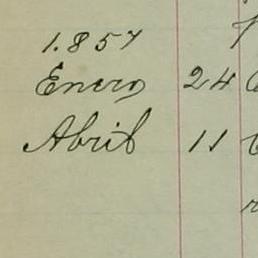 1.857
Enero 24
Abril 11